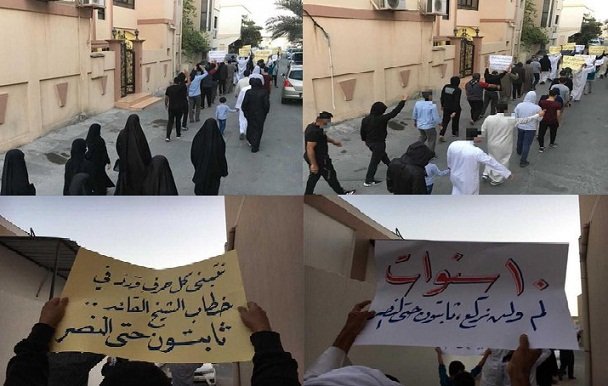 نتبنى كل حرف ورد في
خطاب الشيخ القائد ..
ثابتون حتى النصر
١٠ سنوات
لم ولن نركع، ثابتون حتى النصر